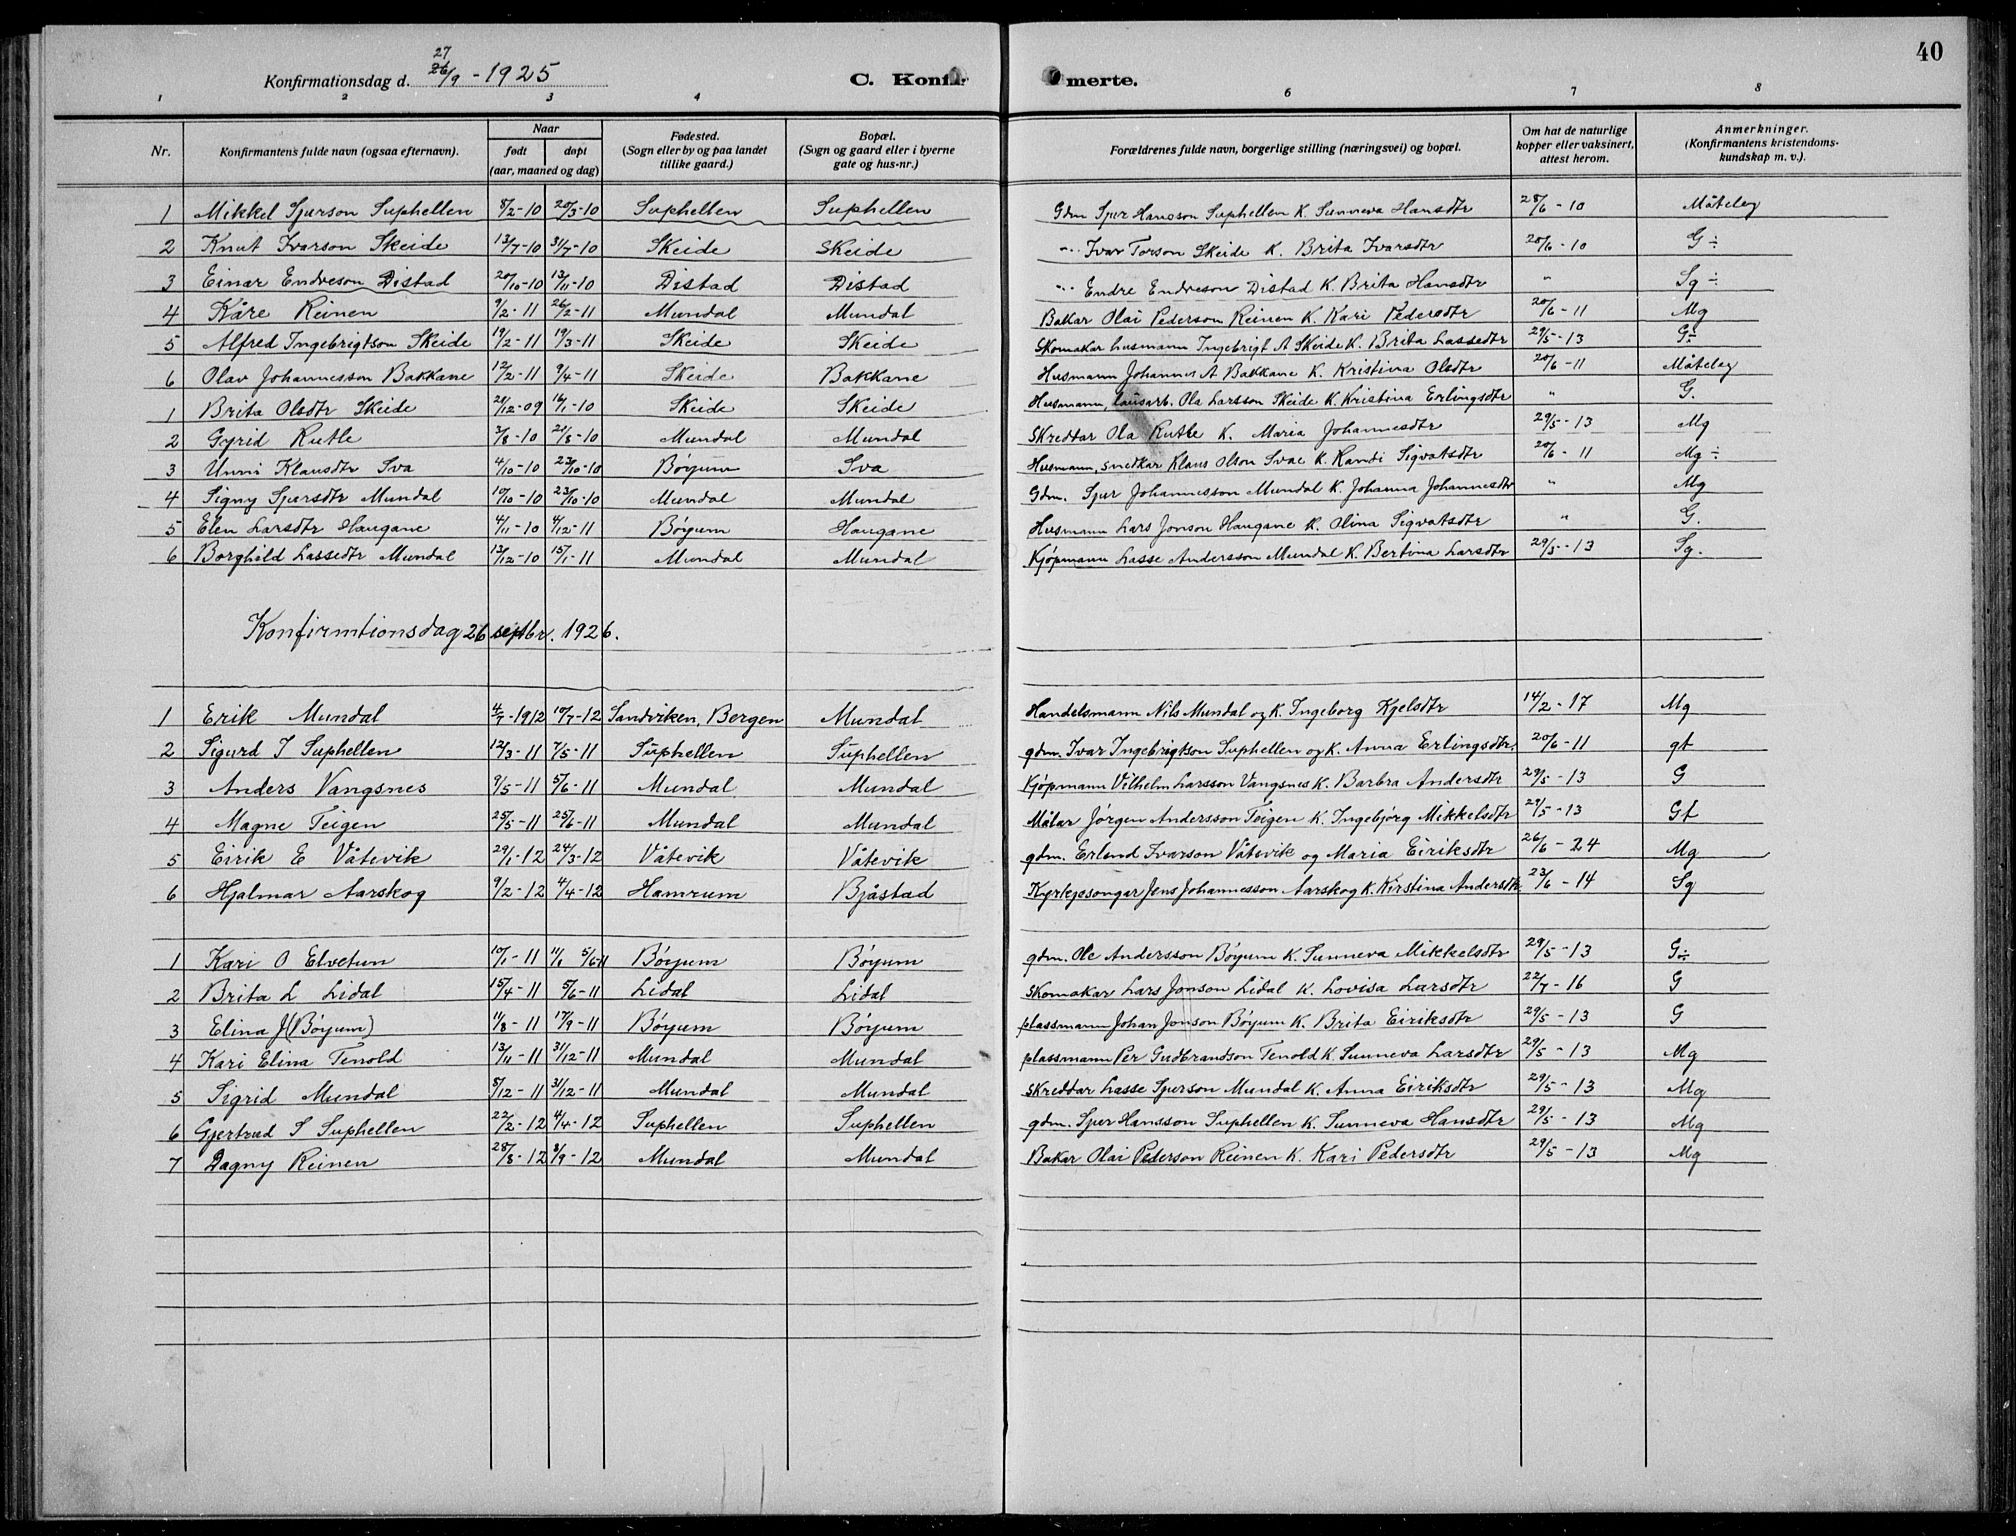 40
27
Konfirmationsdag d. 26/9 - 1925 C. Konfir merte.
1 2 3 4 6 7 8
Nr. Konfirmantens fulde navn (ogsaa efternavn). Naar født døpt (aar, maaned og dag) Fødested. (Sogn eller by og paa landet tillike gaard.) Bopæl. (Sogn og gaard eller i byerne gate og hus-nr.) Forældrenes fulde navn, borgerlige stilling (næringsvei) og bopæl. Om hat de naturlige kopper eller vaksinert, attest herom. Anmerkninger. (Konfirmantens kristendoms-kundskap m. v.).
1 Mikkel Sjurson Suphellen 8/2-10 20/3-10 Suphellen Suphellen Gdm Sjur Hansson Suphellen K. Sunneva Hansdtr 28/6-10 Måteleg
2 Knut Ivarson Skeide 13/7-10 31/7-10 Skeide Skeide -"- Ivar Torson Skeide K. Brita Ivarsdtr 20/6-10 G÷
3 Einar Endreson Distad 20/10-10 13/11-10 Distad Distad -"- Endre Endreson Distad K. Brita Hansdtr " Sg÷
4 Kåre Reinen 9/2-11 26/2-11 Mundal Mundal Bakar Olai Pederson Reinen K. Kari Pedersdtr 20/6-11 Mg
5 Alfred Ingebrigtson Skeide 19/2-11 19/3-11 Skeide Skeide Skomakar husmann Ingebrigt A Skeide K. Brita Lassedtr 29/5-13 G÷
6 Olav Johannesson Bakkane 12/2-11 9/4-11 Skeide Bakkane Husmann Johannes A Bakkane K. Kristina Olsdtr 20/6-11 Måteleg
1 Brita Olsdtr Skeide 21/12-09 16/1-10 Skeide Skeide Husmann, lausarb. Ola Larsson Skeide K. Kristina Erlingsdtr " G.
2 Gyrid Rutle 3/8-10 21/8-10 Mundal Mundal Skreddar Ola Rutle K. Maria Johannesdtr 29/5-13 Mg
3 Unni Klausdtr Sva 4/10-10 23/10-10 Bøyum Sva Husmann, snedkar Klaus Olson Svae K. Randi Sigvatsdtr 20/6-11 Mg÷
4 Signy Sjursdtr Mundal 10/10-10 23/10-10 Mundal Mundal Gdm. Sjur Johannesson Mundal K. Johanna Johannesdtr " Mg
5 Elen Larsdtr Haugane 4/11-10 4/12-11 Bøyum Haugane Husmann Lars Jonson Haugane K. Olina Sigvatsdtr " G.
6 Borghild Lassedtr Mundal 13/12-10 15/1-11 Mundal Mundal Kjøpmann Lasse Andersson Mundal K. Bertina Larsdtr 29/5-13 Sg.
Konfirmtionsdag 26 septbr. 1926.
1 Erik Mundal 4/7-1912 10/7-12 Sandviken, Bergen Mundal Handelsmann Nils Mundal og K. Ingeborg Kjelsdtr 14/2-17 Mg
2 Sigurd I Suphellen 12/3-11 7/5-11 Suphellen Suphellen gdm. Ivar Ingebrigtson Suphellen og K. Anna Erlingsdtr. 20/6-11 gt
3 Anders Vangsnes 9/5-11 5/6-11 Mundal Mundal Kjøpmann Vilhelm Larsson Vangsnes K. Barbra Andersdtr 29/5-13 G
4 Magne Teigen 25/5-11 25/6-11 Mundal Mundal Målar Jørgen Andersson Teigen K. Ingebjørg Mikkelsdtr 29/5-13 Gt
5 Eirik E Våtevik 29/1-12 24/3-12 Våtevik Våtevik gdm. Erlend Ivarson Våtevik og Maria Eiriksdtr 26/6-24 Mg
6 Hjalmar Aarskog 9/2-12 4/4-12 Hamrum Bjåstad Kyrkjesongar Jens Johannesson Aarskog K. Kirstina Andersdtr. 23/6-14 Sg
1 Kari O Elvetun 10/1-11 5/6 11 Bøyum Bøyum gdm. Ole Andersson Bøyum K. Sunneva Mikkelsdtr 29/5-13 G÷
2 Brita L Lidal 15/4-11 5/6-11 Lidal Lidal Skomakar Lars Jonson Lidal K. Lovisa Larsdtr 22/7-16 G
3 Elina J (Bøyum) 11/8-11 17/9-11 Bøyum Bøyum plassmann Johan Jonson Bøyum K. Brita Eiriksdtr 29/5-13 G
4 Kari Elina Tenold 13/11-11 31/12-11 Mundal Mundal plassmann Per Gudbrandson Tenold K. Sunneva Larsdtr 29/5-13 Mg
5 Sigrid Mundal 8/12-11 31/12-11 Mundal Mundal Skreddar Lasse Sjurson Mundal K. Anna Eiriksdtr 29/5-13 Mg
6 Gjertrud S Suphellen 22/2-12 4/4-12 Suphellen Suphellen gdm. Sjur Hansson Suphellen K. Sunneva Hansdtr 29/5-13 Mg
7 Dagny Reinen 28/8-12 8/9-12 Mundal Mundal Bakar Olai Pederson Reinen K. Kari Pedersdtr 29/5-13 Mg